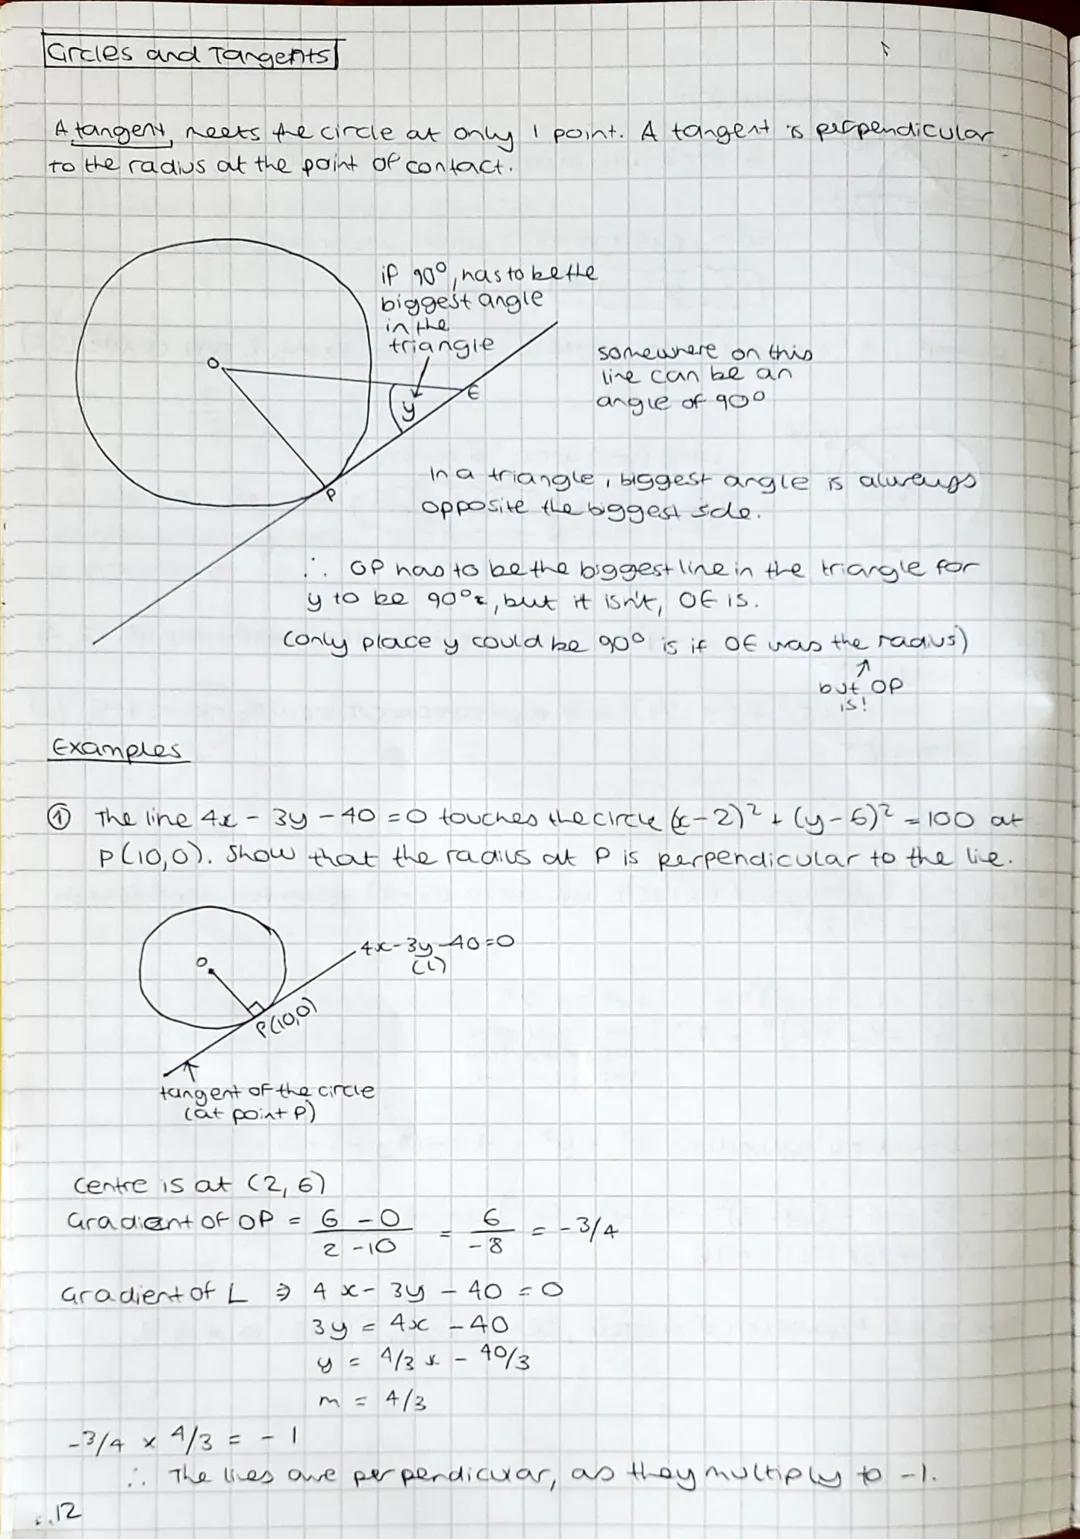 Circles and Tangents
A tangent, meets the circle at only 1 point. A tangent is perpendicular
to the radius at the point of contact.
if 90°, has to be the
biggest angle
in the
triangle
O
y
E
P
somewhere on this
line can be an
angle of 90°
In a triangle, biggest angle is always
opposite the biggest side.
∴ OP has to be the biggest line in the triangle for
y to be 90°, but it isn't, OE is.
(only place y could be 90° is if OE was the radius)
but OP
is!
Examples
① The line 4x - 3y - 40 = 0 touches the circle (x-2)² + (y-6)² = 100 at
P(10,0). Show that the radius at P is perpendicular to the lie.
4x-3y-40=0
(L)
O
P(10,0)
tangent of the circle
(at point P)
Centre is at (2,6)
Gradient of OP = 6 - 0 / 2 - 10 = 6 / -8 = -3/4
Gradient of L ⇒ 4x - 3y - 40 = 0
3y = 4x - 40
y = 4/3 x - 40/3
m = 4/3
-3/4 × 4/3 = -1
∴ The lies are perpendicular, as they multiply to -1.
12